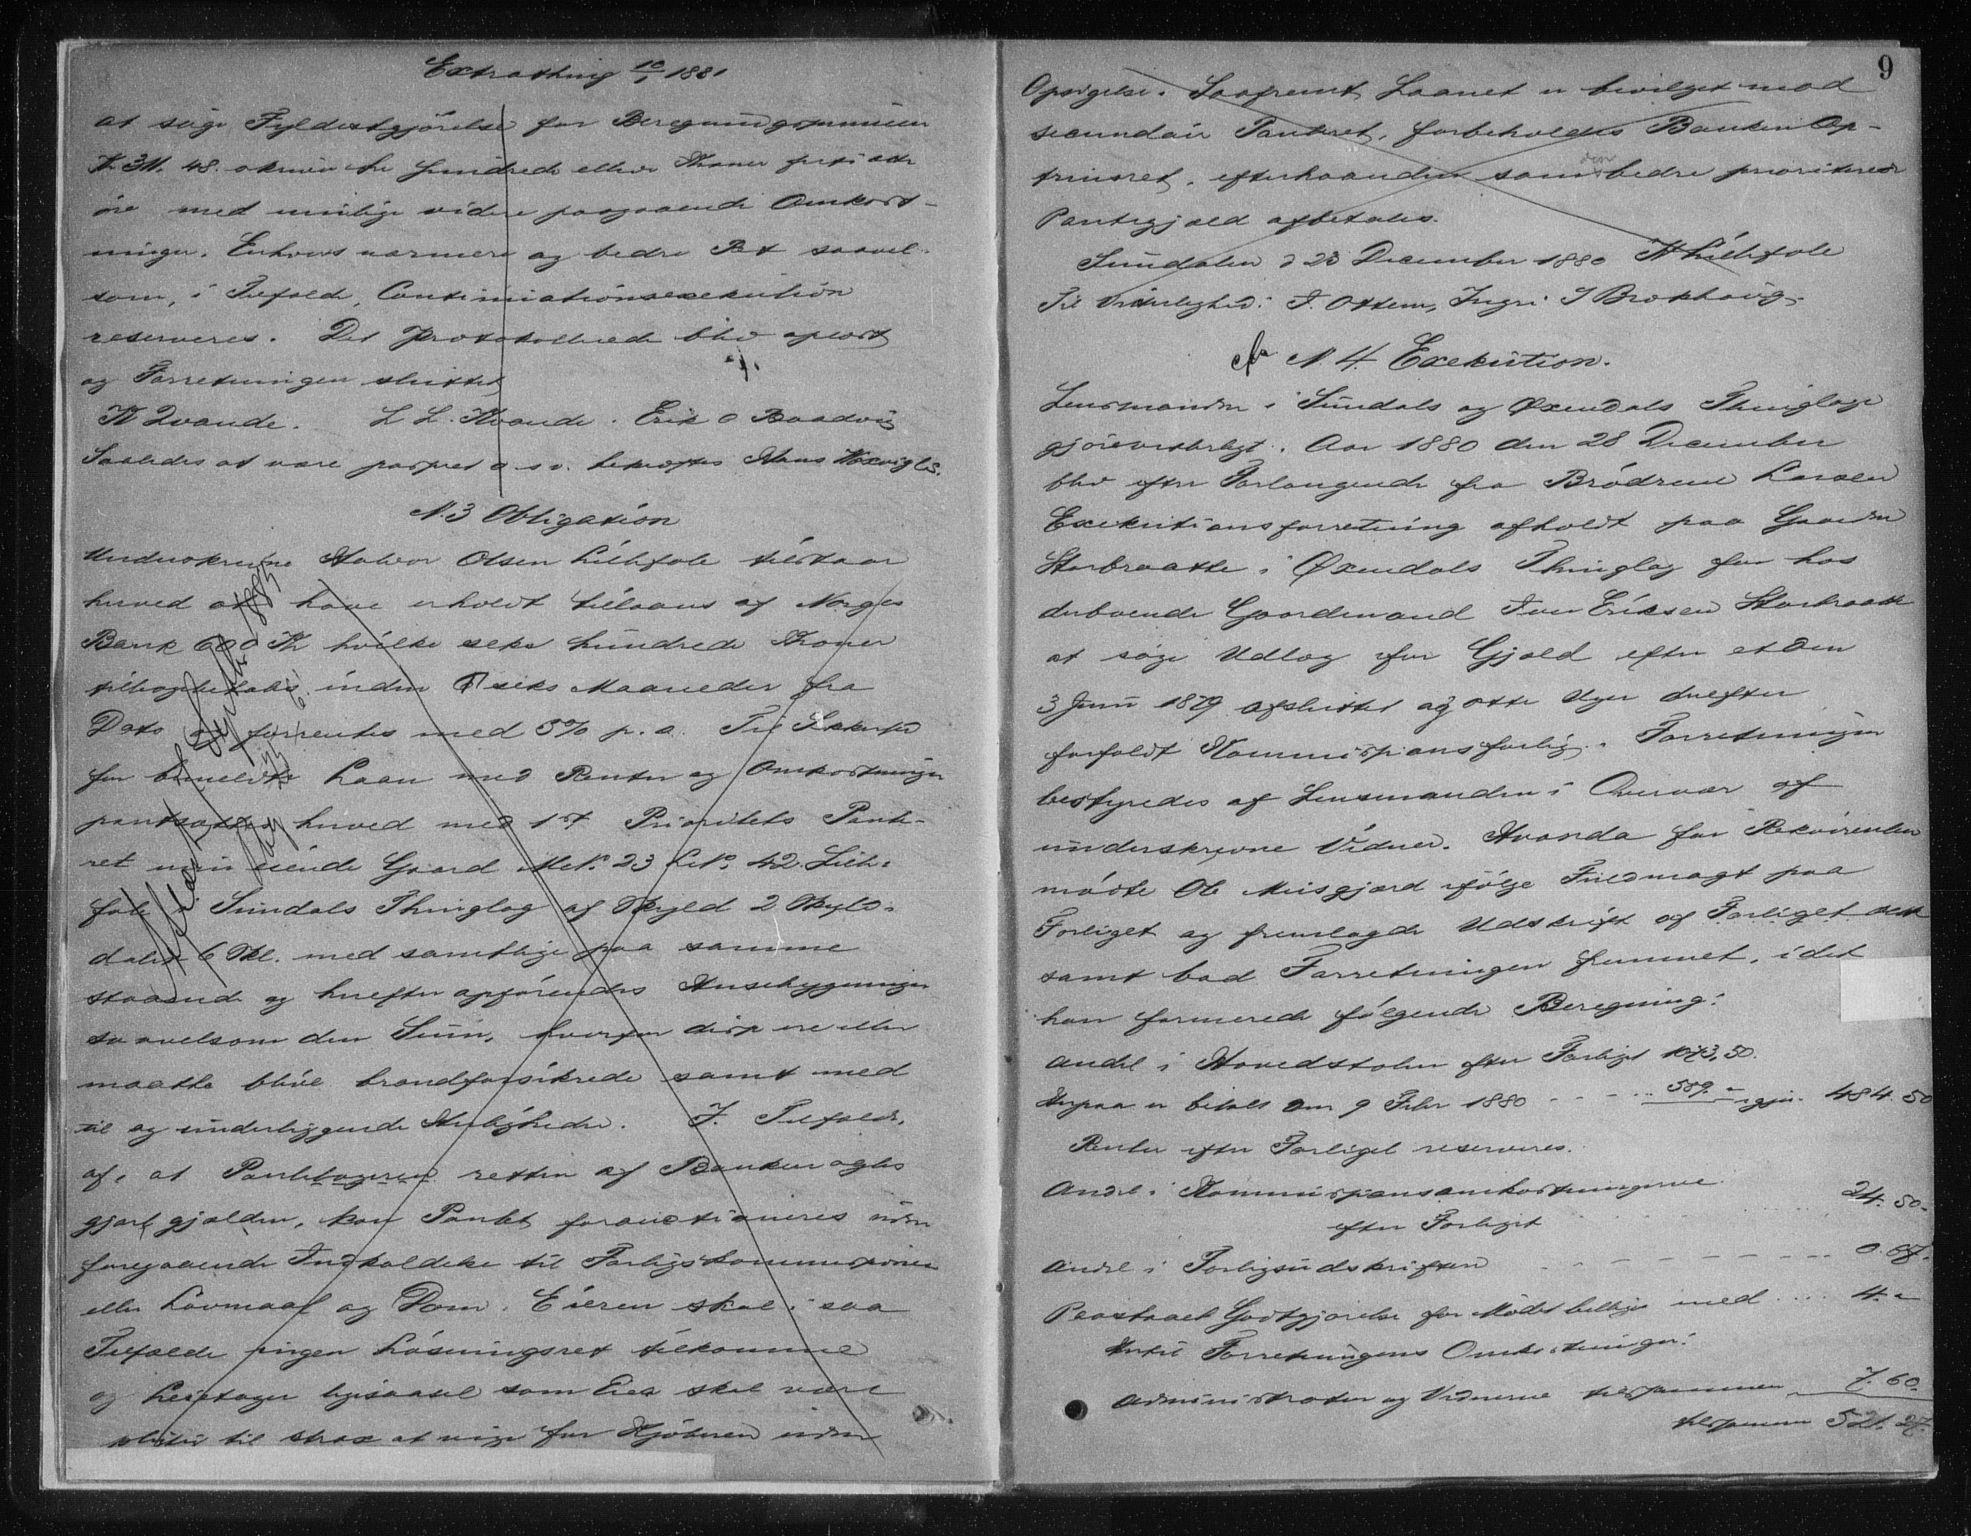 Extrathing 10/1 1881
at søge Fyldestgjørelse for Beregningssummen
Kr. 311. 48. skriver tre hundrede elleve Kroner firti otte
øre med muligt videre paagaaende Omkost-
ninger. Enhvers nærmere og bedre Ret saavel-
som, i Tilfælde, Continuationsexekution
reserveres. Det Protokollerede blev oplæst
og Forretningen sluttet
K Qvande. L L. Hvande. Erik O Baadvig
Saaledes at være passeret o. s. v. bekræftes Hans
N. 3 Obligation
Underskrevne Halvor Olsen Lillefale tilstaar
herved at have erholdt tillaans af Norges
Bank 600 Kr hvilke seks hundrede Kroner
tilbagebetales inden 6 seks Maaneder fra
Dato og forrentes med 5% p. a. Til Sikkerhed
for bemeldte Laan med Renter og Omkostninger
pantsættes herved med 1st Prioritets Pante-
ret min eiende Gaard Mt. No. 23 L. No. 42 Lille-
fale i Sundals Thinglag af Skyld 2 Skyld-
daler 6 Skl. med samtlige paa samme
staaende og herefter opførendes Husebygninger
saavelsom den Sum, hvorfor disse ere eller
maatte blive brandforsikrede samt med
til og underliggende Herligheder. I Tilfælde
af, at Panthaveren retten af Banken opsi
gjort gjælden, kan Pantet forauctioneres uden
foregaaende Indkaldelse til Forligskommissionen
eller Lovmaal og Dom. Eieren skal i saa
Tilfælde ingen Løsningsret tilkomme
og Leietager ligesaavel som Eier skal være
pligtig til strax at vige for Kjøberen uden
Aflæst
1883
9
Opsigelse. Saafremt Laanet er bevilget mod
secundair Panteret, forbeholdes Banken Op-
trinsret, efterhaanden som den bedre prioriterede
Pantegjæld afbetales.
Sundalen d 23 December 1880 H Lillefale
Til Vitterlighed: I. Ottem, Ingr: I Brokhaug.
N 4. Exekution.
Lensmanden i Sundals og Øxendals Thinglage
gjør vitterligt. Aar 1880 den 28 December
blev efter Forlangende fra Brødrene Larsen
Exekutionsforretning afholdt paa Gaarden
Storbraatte i Øxendals Thinglag for hos
derboende Gaardmand Iver Eriksen Storbraatte
at søge Udlæg for Gjæld efter et den
3 Juni 1879 afsluttet og otte Uger derefter
forfaldt Kommissionsforlig. Forretningen
bestyredes af Lensmanden i Overvær af
underskrevne Vidner. Hvorda for Rekvirenten
mødte Ole Misgjærd ifølge Fuldmagt paa
Forliget og fremlagde Udskrift af Forliget
samt bad Forretningen fremmet, idet
han formerede følgende Beregning:
Andel i Hovedstolen efter Forliget 1073,50.
Herpaa er betalt den 9 Febr 1880 - - - 589.- igjen. 484. 50
Renter efter Forliget reserveres.
Andel i Kommissionsomkostningerne
efter Forliget 24. 50.
Andel i Forligsudskriften - - - 0. 67.
Paastaaet Godtgjørelse for Mødet billiges med ... 4. -
Hertil Forretningens Omkostninger:
Administrator og Vidnerne tilsammen 7. 60.
tilsammen 521. 27.